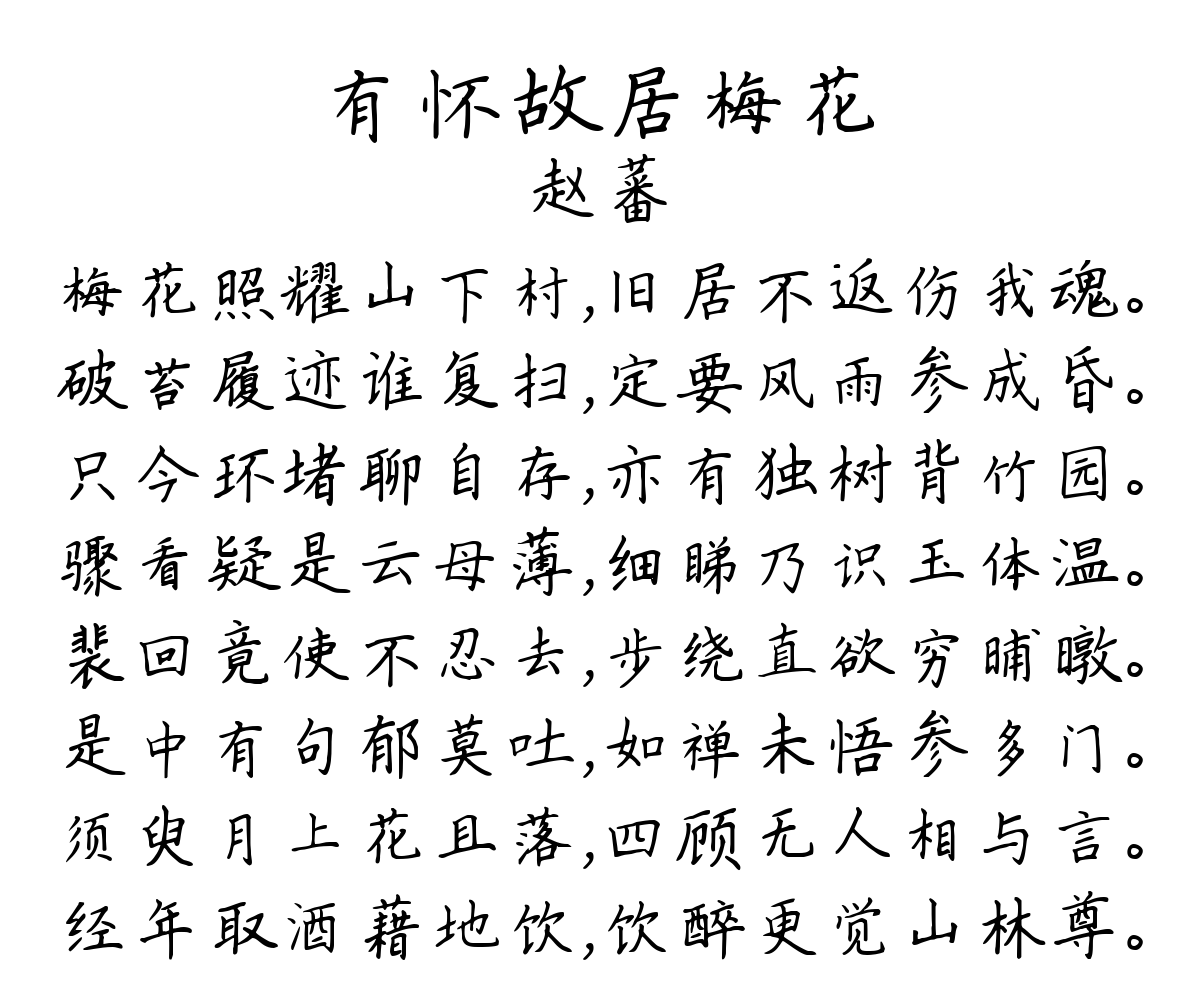 有怀故居梅花
赵蕃
梅花照耀山下村,旧居不返伤我魂。
破苔履迹谁复扫,定要风雨参成昏。
只今环堵聊自存,亦有独树背竹园。
骤看疑是云母薄,细睇乃识玉体温。
裴回竟使不忍去,步绕直欲穷晡暾。
是中有句郁莫吐,如禅未悟参多门。
须臾月上花且落,四顾无人相与言。
经年取酒藉地饮,饮醉更觉山林尊。